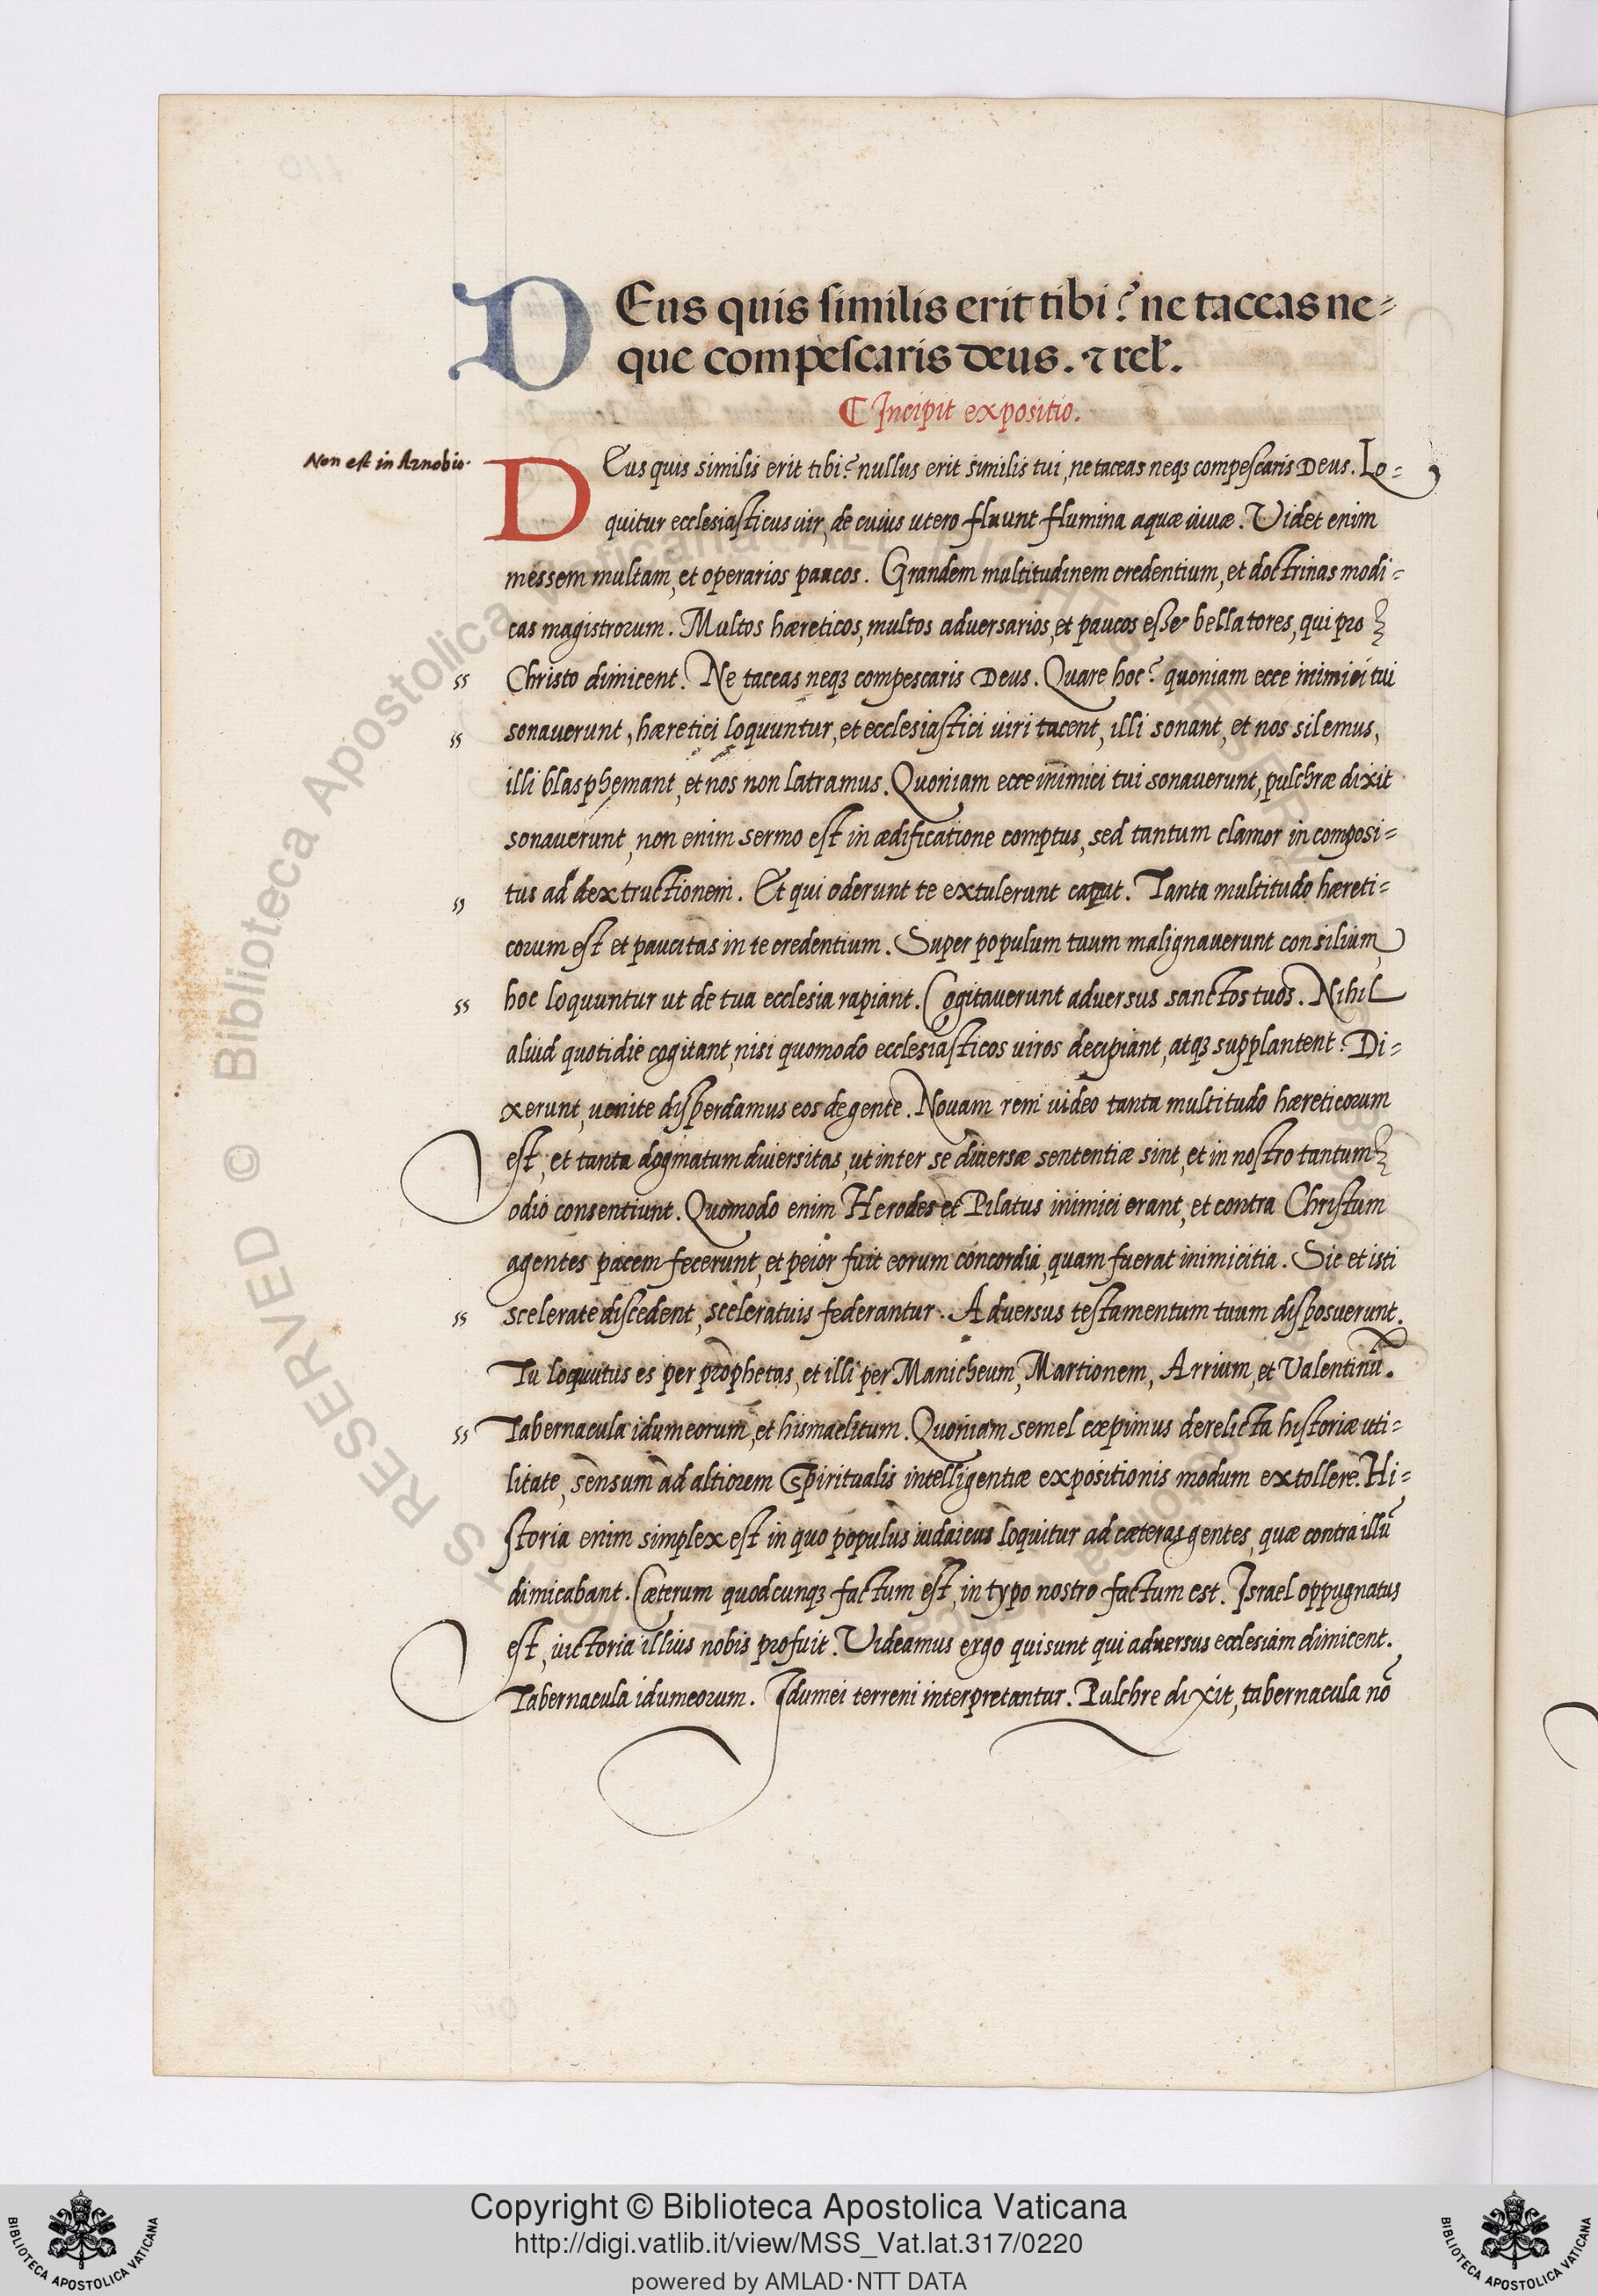 DEus quis similis erit tibi? ne taceas ne=
que compescaris deus. ⁊ rel.
Incipit expositio.
Non est in Arnobio.
DEus quis similis erit tibi? nullus erit similis tui, ne taceas neqꝫ compescaris Deus. Lo=
quitur ecclesiasticus uir, de cuius utero fluunt flumina aquæ uiuæ. Videt enim
messem multam, et operarios paucos. Grandem multitudinem credentium, et doctrinas modi=
cas magistrorum. Multos hæreticos, multos adversarios, et paucos esse bellatores, qui pro
Christo dimicent. Ne taceas neqꝫ compescaris Deus. Quare hoc? quoniam ecce inimici tui
sonauerunt, hæretici loquuntur, et ecclesiastici uiri tacent, illi sonant, et nos silemus,
illi blasphemant, et nos non latramus. Quoniam ecce inimici tui sonauerunt, pulchræ dixit
sonauerunt, non enim sermo est in ædificatione comptus, sed tantum clamor in composi=
tus ad dextructionem. Et qui oderunt te extulerunt caput. Tanta multitudo hæreti=
corum est et paucitas in te credentium. Super populum tuum malignauerunt consilium,
hoc loquuntur ut de tua ecclesia rapiant. Cogitauerunt adversus sanctos tuos. Nihil
aliud quotidie cogitant, nisi quomodo ecclesiasticos uiros decipiant, atqꝫ supplantent. Di=
xerunt, uenite disperdamus eos de gente. Nouam rem uideo tanta multitudo hæreticorum
est, et tanta dogmatum diuersitas, ut inter se diuersæ sententiæ sint, et in nostro tantum
odio consentiunt. Quomodo enim Herodes et Pilatus inimici erant, et contra Christum
agentes pacem fecerunt, et peior fuit eorum concordia, quam fuerat inimicitia. Sic et isti
scelerate discedent, sceleratuis federantur. Adversus testamentum tuum disposuerunt.
Tu loquutus es per prophetas, et illi per Manicheum, Martionem, Arrium, et Valentinū.
Tabernacula idumeorum, et hismaelitum. Quoniam semel cœpimus derelicta historiæ uti=
litate, sensum ad altiorem spiritualis intelligentiæ expositionis modum extollere. Hi=
storia enim simplex est in quo populus iudaicus loquitur ad cæteras gentes, quæ contra illū
dimicabant. Cæterum quodcunqꝫ factum est, in typo nostro factum est. Israel oppugnatus
est, uictoria illius nobis profuit. Videamus ergo qui sunt qui adversus ecclesiam dimicent.
Tabernacula idumeorum. Idumei terreni interpretantur. Pulchre dixit, tabernacula nō
Biblioteca Apostolica Vaticana
Copyright © Biblioteca Apostolica Vaticana
http://digi.vatlib.it/view/MSS_Vat.lat.317/0220
powered by AMLAD·NTT DATA
BIBLIOTECA APOSTOLICA VATICANA
BIBLIOTECA APOSTOLICA VATICANA